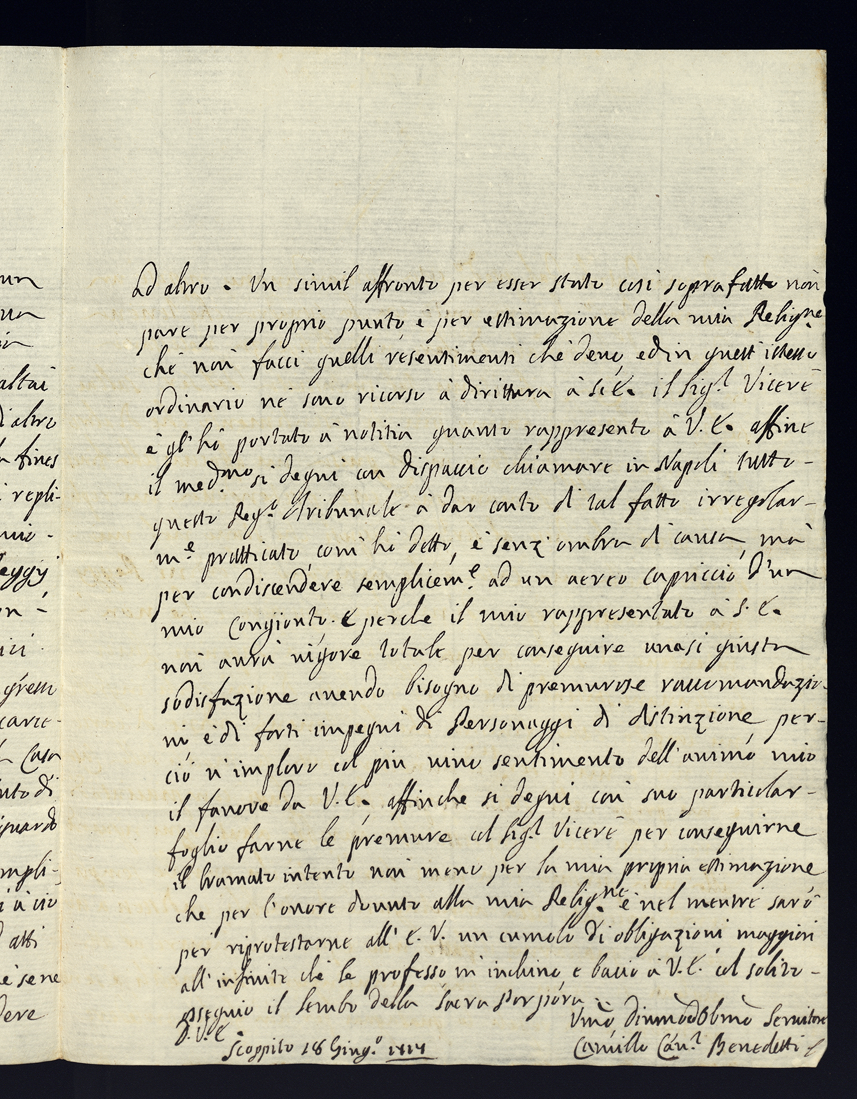 un
altai
d'altro
fines
repli-
mio -
leggj
on -
ici
gressi
carce-
Casa
nto di
iguardo
mpli-
i à ciò
d atti
e se ne
dere
ad altro. Un simil affronto per esser stato così soprafatto non
pare per proprio punto è per estimazione della mia Relig.ne
che non facci quelli resentimenti che devo, ed in quest'istesso
ordinario nè sono ricorso à dirittura à S. E. il Sig.r Vicerè
è gl'hò portato à notitia quanto rappresento à V. E. affine
il med.mo si degni con dispaccio chiamare in Napoli tutto-
questo Reg.o Tribunale à dar conto di tal fatto irregolar-
m.e pratticato, com'hò detto, è senz'ombra di causa, mà
per condiscendere semplicem.e ad un aereo capriccio d'un
mio Congionto. E perche il mio rappresentato à S. E.
non aurà uigore totale per conseguire una sì giusta
sodisfazione auendo bisogno di premurose raccomandazio-
ni è di forti impegni di Personaggi di distinzione per-
ciò n'imploro col più uiuo sentimento dell'animo mio
il fauore da V. E. affinche si degni con suo particolar-
foglio farne le premure col Sig.r Vicerè per conseguirne
il bramato intento non meno per la mia propria estimazione
che per l'onore douuto alla mia Relig.ne è nel mentre sarò
per riprotestarne all'E. V. un cumolo di obligazioni maggiori
all'infinite che le professo m'inchino e bacio à V. E. col solito-
osseguio il lembo della Sacra Porpora
D. V. E.
Scoppito 18 Giug.o
Vmo Diumo ed Obmo Seruitore
Camillo Cau.r Benedetti